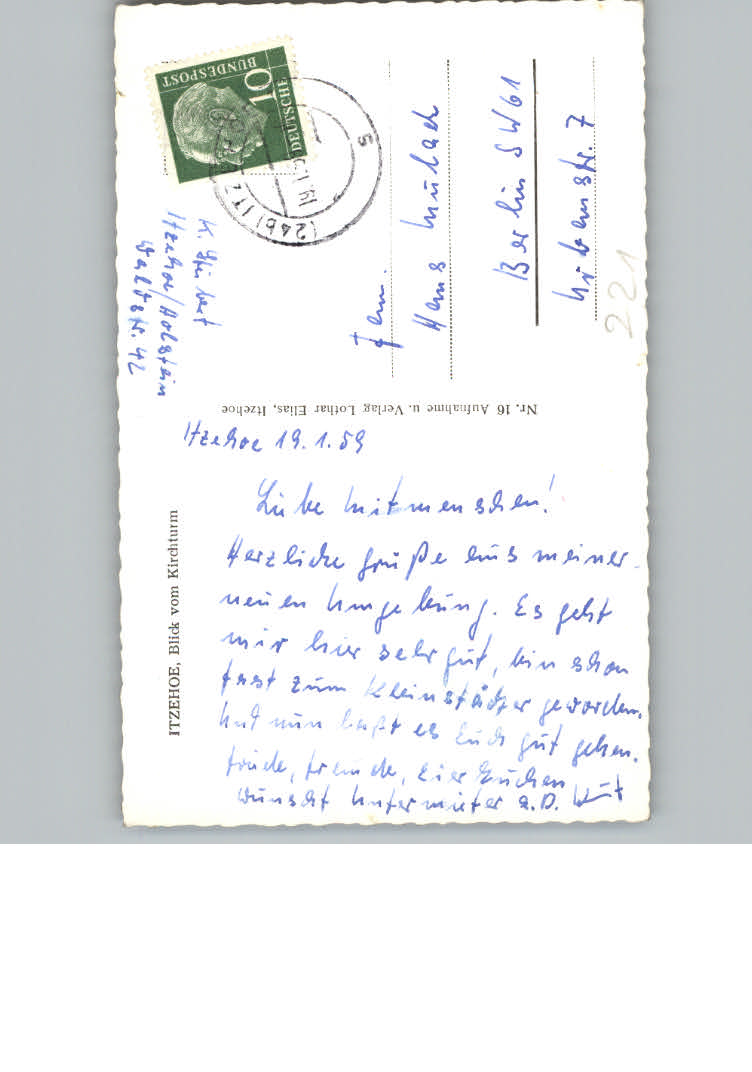 ITZEHOE, Blick vom Kirchturm
Itzehoe 19.1.59
Liebe Mitmenschen!
Herzliche Grüße aus meiner
neuen Umgebung. Es geht
mir hier sehr gut, bin schon
fast zum Kleinstädter geworden.
Und nun laßt es Euch gut gehen.
Friede, Freude, Eierkuchen
wünscht Untermieter a.D. Kurt
Nr. 16 Aufnahme u. Verlag Lothar Elias, Itzehoe
K.
Itzehoe/Holstein
Waldstr. 42
DEUTSCHE
BUNDESPOST
10
(24b) ITZ
19.1.
5
Fam.
Hans
Berlin SW61
Urbanstr. 7
221